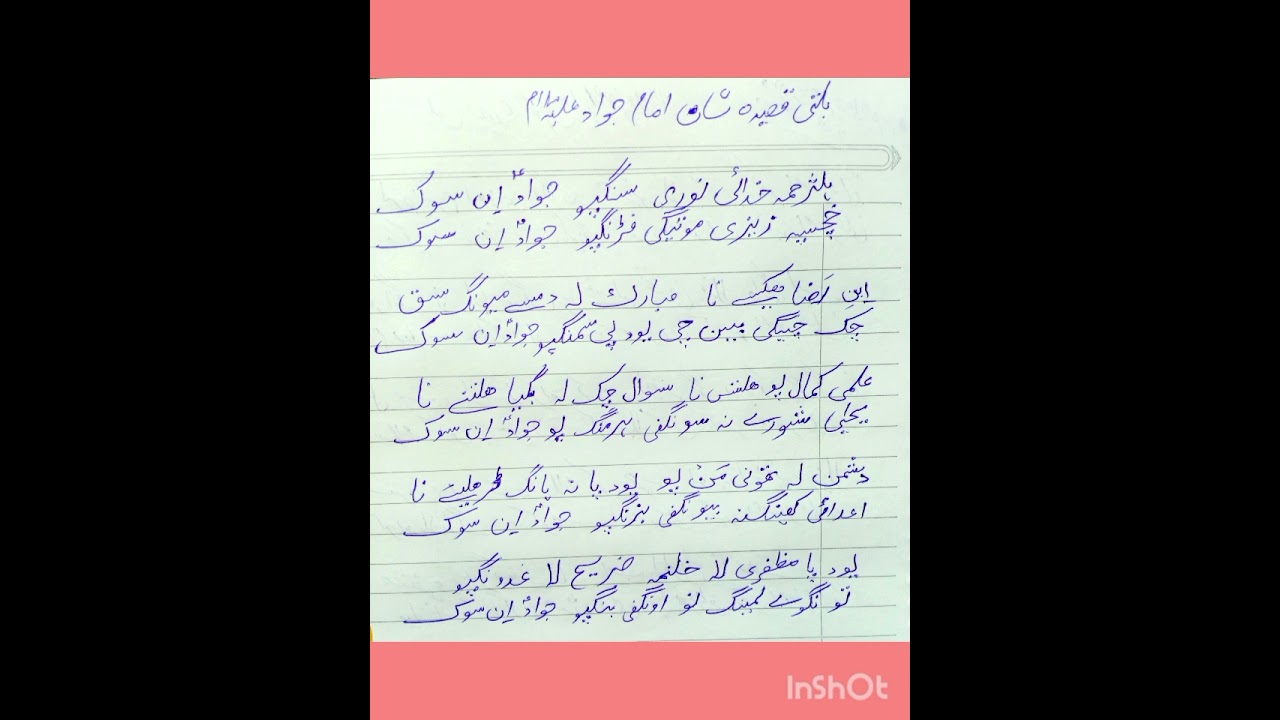 بلتی قصیدہ شان امام جواد علیہ السلام
خدائی نوری سنگپو جوادؑ اِن سوک
زیزی مونیگی فڑنگپو جوادؑ اِن سوک
ابنِ رَضا نا مبارک لہ دسے میونگ سق
چک جیگی بین چی یود پی سمنگپو جوادؑ اِن سوک
علمی کمال پو هلتس نا سوال چک لہ هلتے نا
یحیٰی شورے نہ سونگفی ہرمنگ پو جوادؑ اِن سوک
دشمن لہ مَن پو یود پا نہ یانگ نا
اعدائی کھینگسنہ بیونگفی بزنگپو جوادؑ اِن سوک
یود پا مظفری لا ضریح لا غدونگپو
نو نگوے لمبنگ نو اونگفی بنگپو جوادؑ اِن سوک
InShOt